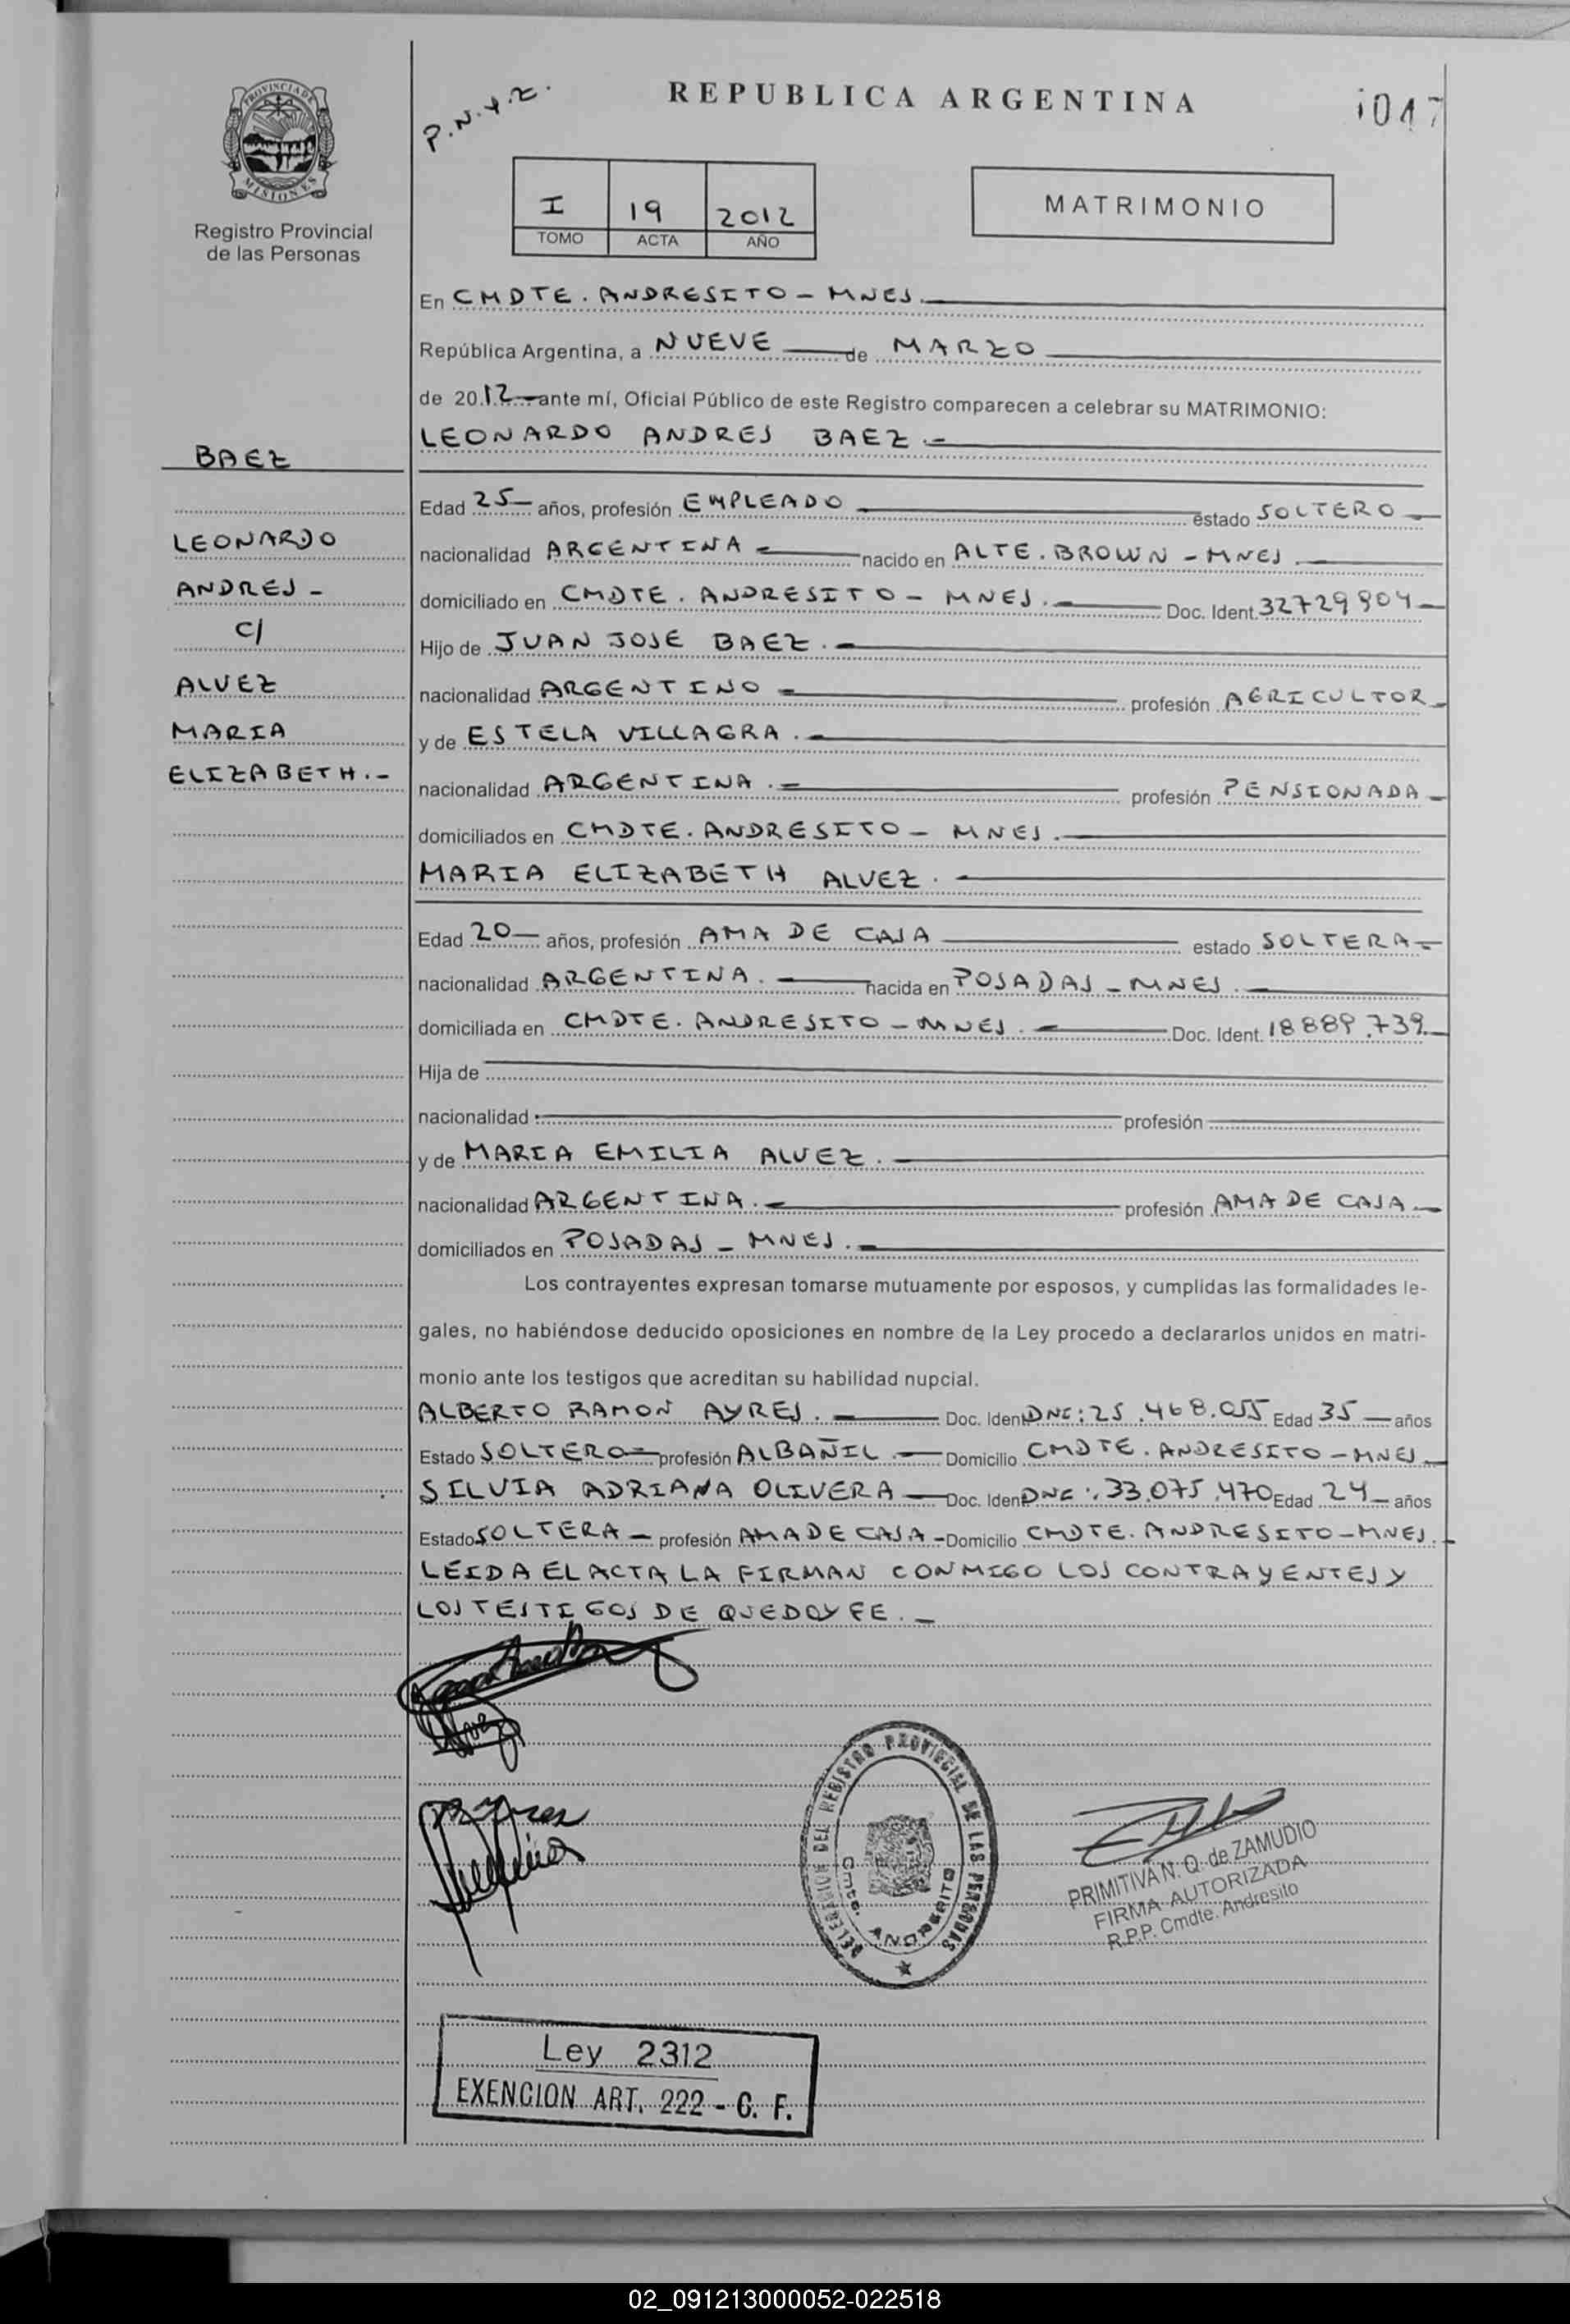 PROVINCIA DE
MISIONES
Registro Provincial
de las Personas
P.N.Y.Z.
REPUBLICA ARGENTINA
1047
I 19 2012
TOMO ACTA AÑO
MATRIMONIO
En CMDTE. ANDRESITO - MNES.
República Argentina, a NUEVE de MARZO
de 2012 ante mí, Oficial Público de este Registro comparecen a celebrar su MATRIMONIO:
LEONARDO ANDRES BAEZ.-
BAEZ
LEONARDO
ANDRES -
C/
ALVEZ
MARIA
ELIZABETH.-
Edad 25 años, profesión EMPLEADO estado SOLTERO
nacionalidad ARGENTINA nacido en ALTE. BROWN - MNES.
domiciliado en CMDTE. ANDRESITO - MNES. Doc. Ident. 32729904
Hijo de JUAN JOSE BAEZ.
nacionalidad ARGENTINO profesión AGRICULTOR
y de ESTELA VILLAGRA.
nacionalidad ARGENTINA. profesión PENSIONADA
domiciliados en CMDTE. ANDRESITO - MNES.
MARIA ELIZABETH ALVEZ.
Edad 20 años, profesión AMA DE CASA estado SOLTERA
nacionalidad ARGENTINA. nacida en POSADAS - MNES.
domiciliada en CMDTE. ANDRESITO - MNES. Doc. Ident. 18889.739
Hija de
nacionalidad profesión
y de MARIA EMILIA ALVEZ.
nacionalidad ARGENTINA. profesión AMA DE CASA
domiciliados en POSADAS - MNES.
Los contrayentes expresan tomarse mutuamente por esposos, y cumplidas las formalidades le-
gales, no habiéndose deducido oposiciones en nombre de la Ley procedo a declararlos unidos en matri-
monio ante los testigos que acreditan su habilidad nupcial.
ALBERTO RAMON AYRES. Doc. Iden DNI: 25.468.055 Edad 35 años
Estado SOLTERO profesión ALBAÑIL. Domicilio CMDTE. ANDRESITO - MNES
SILVIA ADRIANA OLIVERA Doc. Iden DNI: 33.075.470 Edad 24 años
Estado SOLTERA profesión AMA DE CASA - Domicilio CMDTE. ANDRESITO - MNES.
LEIDA EL ACTA LA FIRMAN CONMIGO LOS CONTRAYENTES Y
LOS TESTIGOS DE QUE DOY FE.
DELEGACION DEL REGISTRO PROVINCIAL DE LAS PERSONAS
Cmte. ANDRESITO
PRIMITIVA N. Q. de ZAMUDIO
FIRMA AUTORIZADA
R.P.P. Cmdte. Andresito
Ley 2312
EXENCION ART. 222 - C. F.
02_091213000052-022518